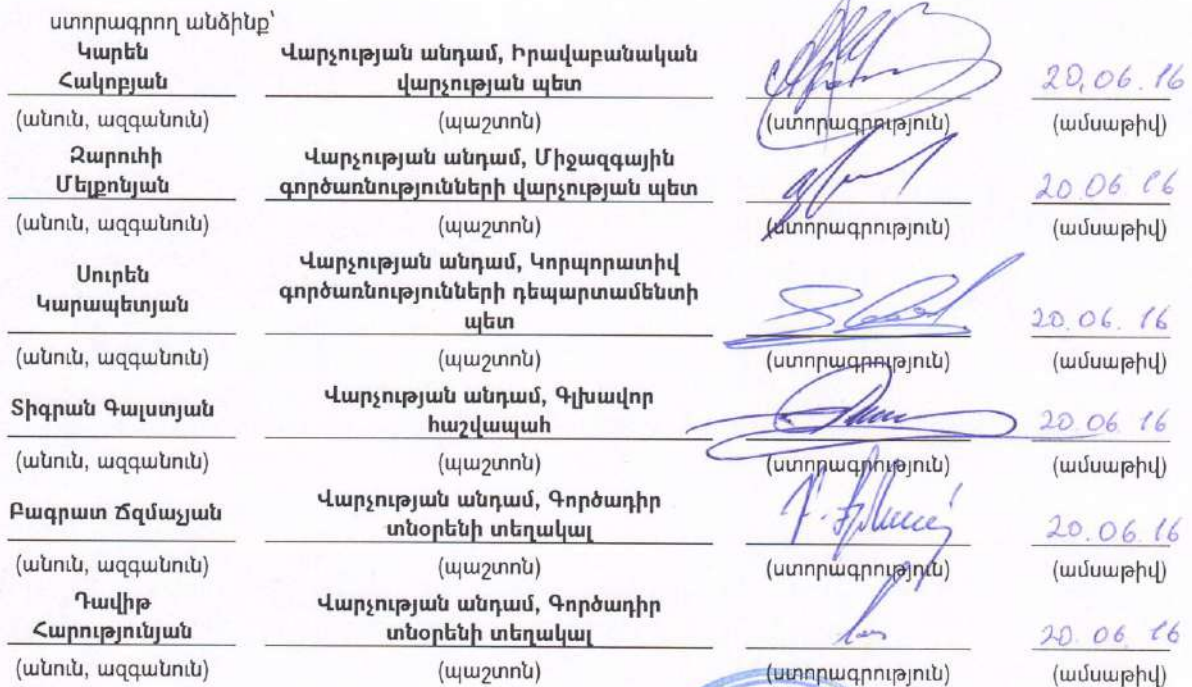 ստորագրող անձինք՝
Կարեն Հակոբյան Վարչության անդամ, Իրավաբանական վարչության պետ 20.06.16
(անուն, ազգանուն) (պաշտոն) (ստորագրություն) (ամսաթիվ)
Զարուհի Մելքոնյան Վարչության անդամ, Միջազգային գործառնությունների վարչության պետ 20 06 16
(անուն, ազգանուն) (պաշտոն) (ստորագրություն) (ամսաթիվ)
Սուրեն Կարապետյան Վարչության անդամ, Կորպորատիվ գործառնությունների դեպարտամենտի պետ 20.06.16
(անուն, ազգանուն) (պաշտոն) (ստորագրություն) (ամսաթիվ)
Տիգրան Գալստյան Վարչության անդամ, Գլխավոր հաշվապահ 20.06.16
(անուն, ազգանուն) (պաշտոն) (ստորագրություն) (ամսաթիվ)
Բագրատ Ճզմաչյան Վարչության անդամ, Գործադիր տնօրենի տեղակալ 20.06.16
(անուն, ազգանուն) (պաշտոն) (ստորագրություն) (ամսաթիվ)
Դավիթ Հարությունյան Վարչության անդամ, Գործադիր տնօրենի տեղակալ 20.06.16
(անուն, ազգանուն) (պաշտոն) (ստորագրություն) (ամսաթիվ)